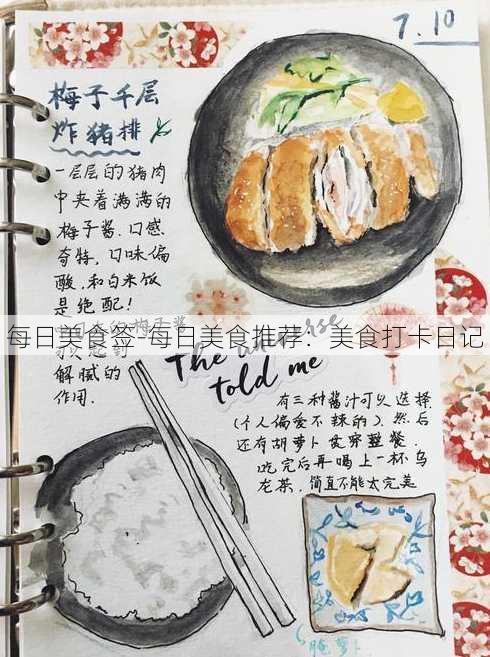 7.10
梅子千层
炸猪排
一层层的猪肉
中夹着满满的
梅子酱.口感
奇特,口味偏
酸,和白米饭
是绝配!
每日美食签-每日美食推荐：美食打卡日记
解腻的
作用.
The universe
told me
有三种酱汁可以选择
(个人偏爱不辣的).然后
还有胡萝卜
吃完后再喝上一杯乌
龙茶,简直不能太完美
(腌萝卜